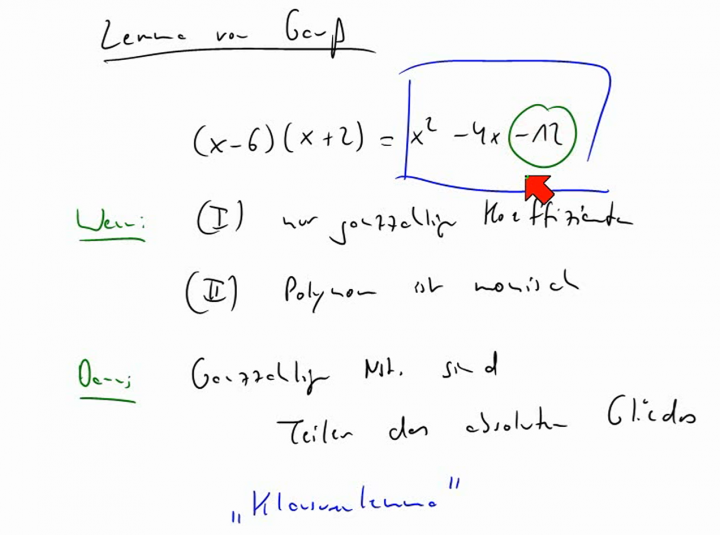 Lemma von Gauß
(x-6)(x+2) = x² -4x -12
Wenn: (I) nur ganzzahlige Koeffizienten
(II) Polynom ist monisch
Dann: Ganzzahlige Nst. sind
Teiler des absoluten Gliedes
„Klausurlemma"